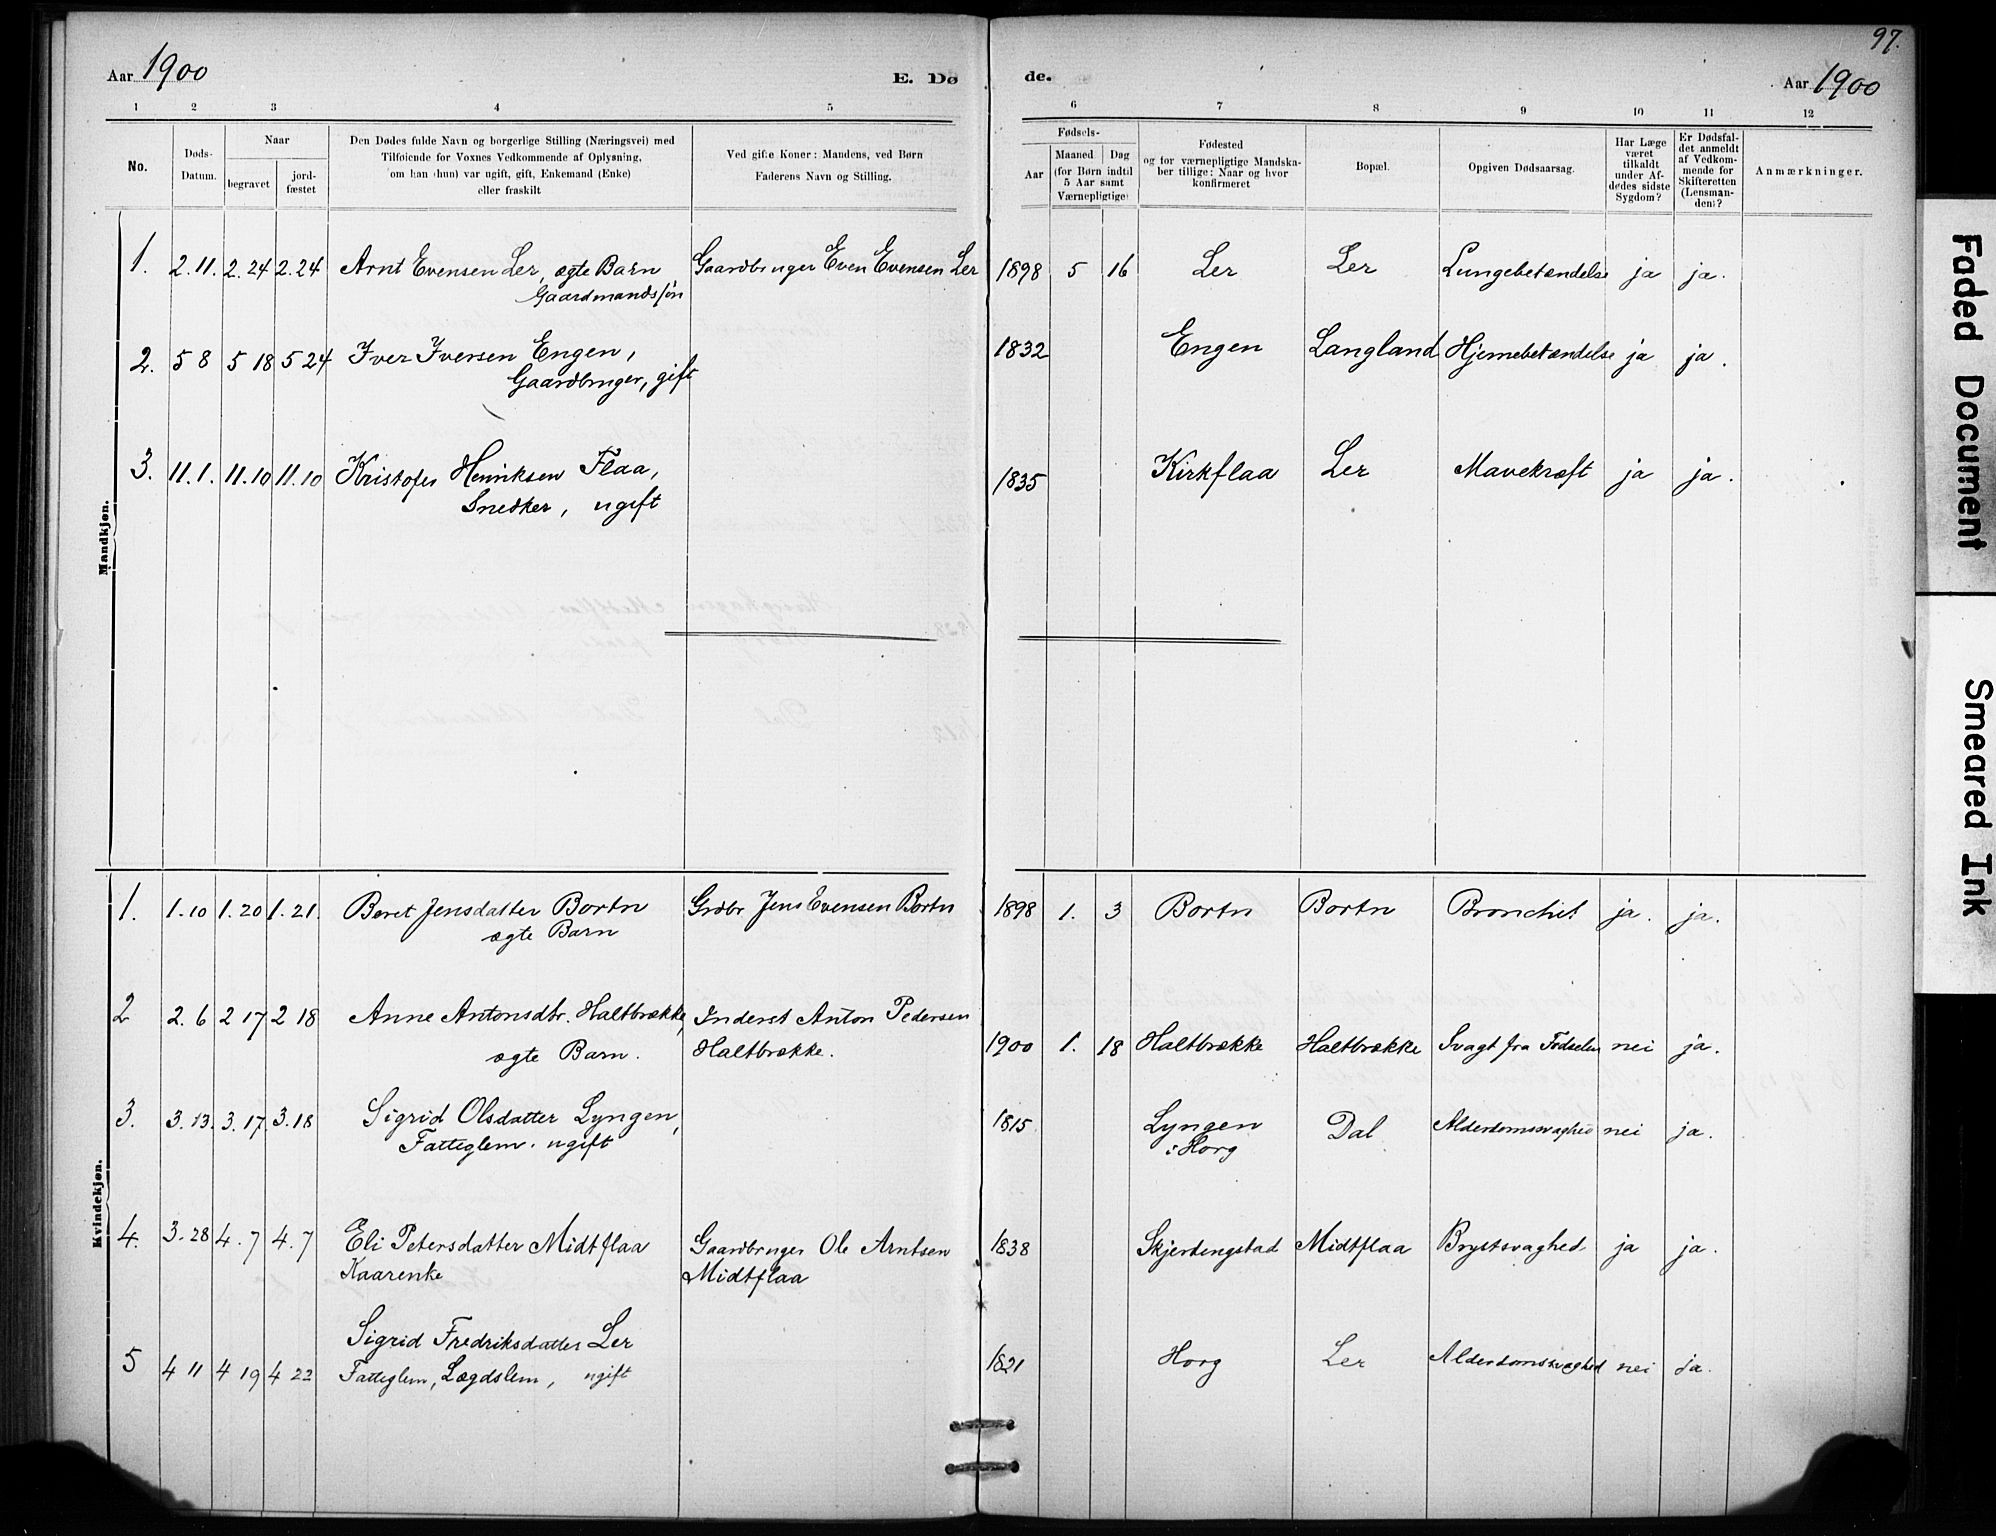 97.
Aar 1900 E. Døde. Aar 1900
1 2 3 4 5 6 7 8 9 10 11 12
No.
Døds-
Datum.
Naar
begravet
jord-
fæstet
Den Dødes fulde Navn og borgerlige Stilling (Næringsvei) med
Tilføiende for Voxnes Vedkommende af Oplysning,
om han (hun) var ugift, gift, Enkemand (Enke)
eller fraskilt
Ved gifte Koner: Mandens, ved Børn
Faderens Navn og Stilling.
Fødsels-
Aar
Maaned Dag
(for Børn indtil
5 Aar samt
Værnepligtige)
Fødested
og for værnepligtige Mandska-
ber tillige: Naar og hvor
konfirmeret
Bopæl.
Opgiven Dødsaarsag.
Har Læge
været
tilkaldt
under Af-
dødes sidste
Sygdom?
Er Dødsfal-
det anmeldt
af Vedkom-
mende for
Skifteretten
(Lensman-
den)?
Anmærkninger.
Mandkjøn.
1. 2.11. 2.24 2.24 Arnt Evensen Ler, ægte Barn Gaardbruger Even Evensen Ler 1898 5 16 Ler Ler Lungebetændelse ja ja.
Gaardmandssøn
2. 5 8 5 18 5 24 Iver Iversen Engen, 1832 Engen Langland Hjernebetændelse ja ja.
Gaardbruger, gift
3. 11.1. 11.10 11.10 Kristofer Henriksen Flaa, 1835 Kirkflaa Ler Mavekræft ja ja.
Snedker, ugift
Kvindekjøn.
1. 1.10 1.20 1.21. Beret Jensdatter Bortn Grdbr Jens Evensen Bortn 1898 1. 3 Bortn Bortn Bronchit ja. ja.
ægte Barn
2 2.6 2 17 2 18 Anne Antonsdtr. Haltbrække, Inderst Anton Pedersen
ægte Barn. Haltbrække. 1900 1. 18 Haltbrække Haltbrække Svagt fra Fødselen nei ja.
3. 3.13. 3.17 3.18 Sigrid Olsdatter Lyngen, 1815 Lyngen Dal Alderdomssvaghed nei ja.
Fatteglem. ugift i Horg
4. 3.28 4.7 4.7 Eli Petersdatter Midtflaa Gaardbruger Ole Arntsen 1838 Skjerdengstad Midtflaa Brystsvaghed ja ja.
Kaarenke Midtflaa
Sigrid Fredriksdatter Ler
5 4 11 4 19 4 22 Fatteglem, Lægdslem, ugift 1821 Horg Ler Alderdomssvaghed nei ja.
Faded Document
Smeared Ink